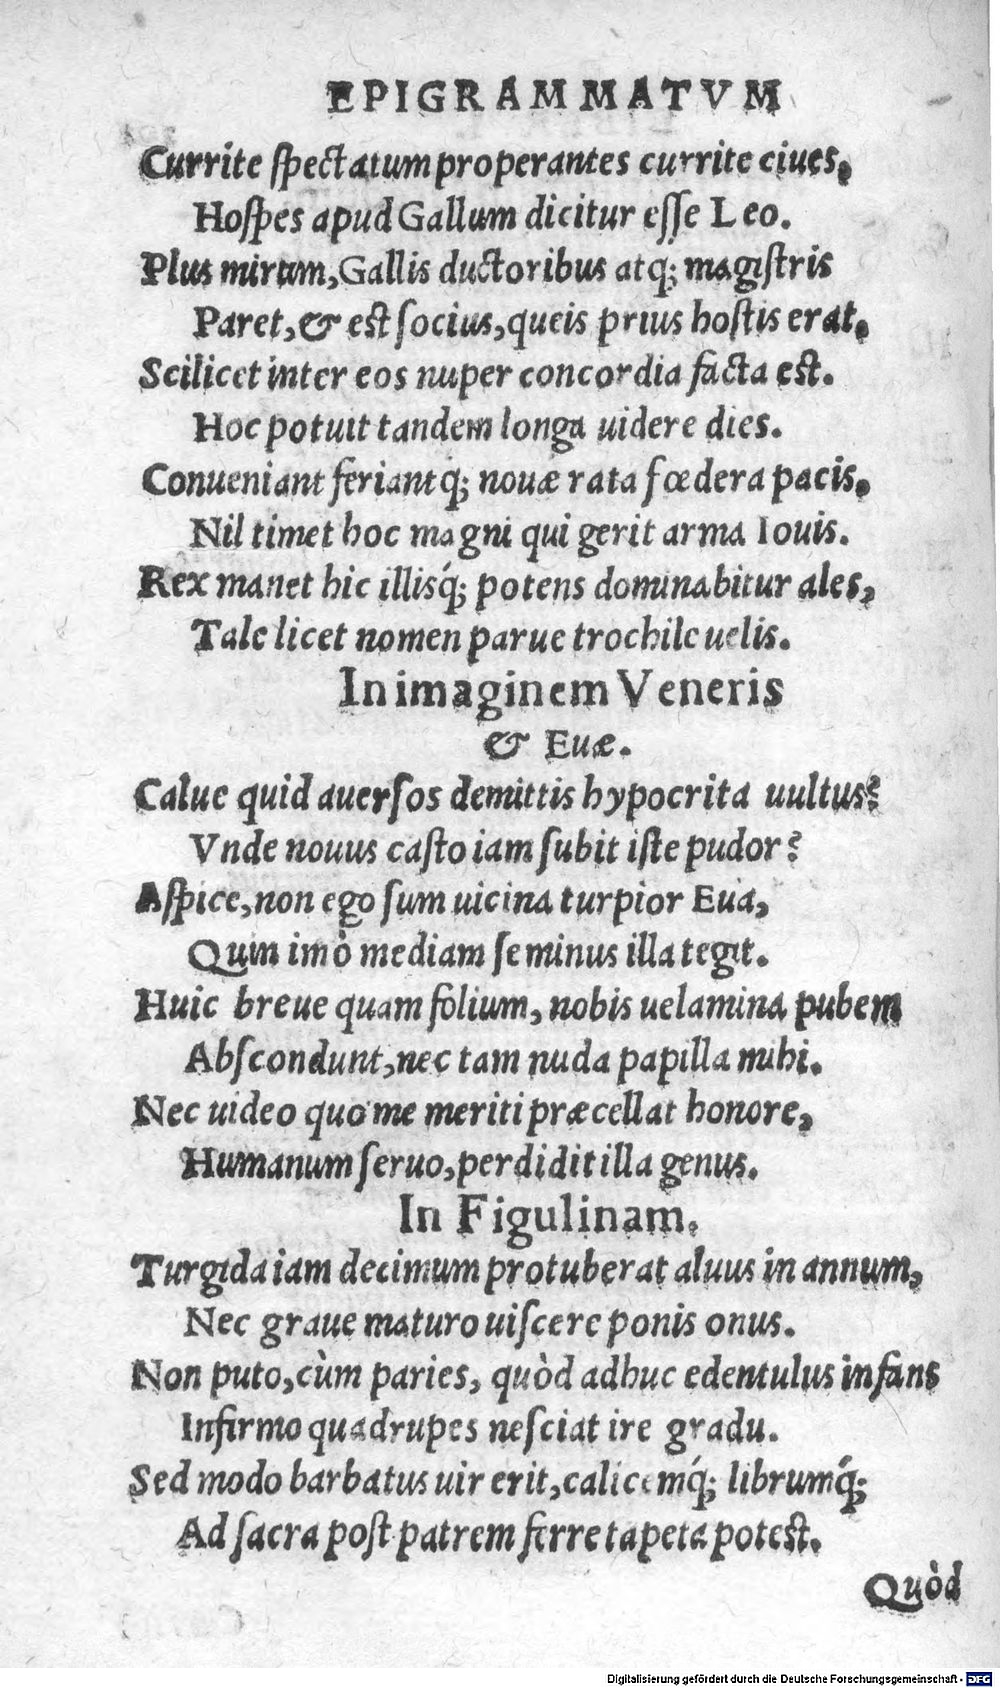 EPIGRAMMATVM
Currite ſpectatum properantes currite ciues,
Hoſpes apud Gallum dicitur eſſe Leo.
Plus mirum, Gallis ductoribus atq; magiſtris
Paret, & eſt ſocius, queis prius hoſtis erat,
Scilicet inter eos nuper concordia facta eſt.
Hoc potuit tandem longa uidere dies.
Conueniant feriantq; nouæ rata fœdera pacis,
Nil timet hoc magni qui gerit arma Iouis.
Rex manet hic illisq́; potens dominabitur ales,
Tale licet nomen parue trochile uelis.
In imaginem Veneris
& Euæ.
Calue quid auerſos demittis hypocrita uultus?
Vnde nouus caſto iam ſubit iſte pudor?
Aſpice, non ego ſum uicina turpior Eua,
Quin imò mediam ſe minus illa tegit.
Huic breue quam folium, nobis uelamina pubem
Abſcondunt, nec tam nuda papilla mihi.
Nec uideo quo me meriti præcellat honore,
Humanum ſeruo, perdidit illa genus.
In Figulinam.
Turgida iam decimum protuberat aluus in annum,
Nec graue maturo uiſcere ponis onus.
Non puto, cùm paries, quòd adhuc edentulus infans
Infirmo quadrupes neſciat ire gradu.
Sed modo barbatus uir erit, calicemq́; librumq́;
Ad ſacra poſt patrem ferre tapeta poteſt.
Quòd
Digitalisierung gefördert durch die Deutsche Forschungsgemeinschaft - DFG